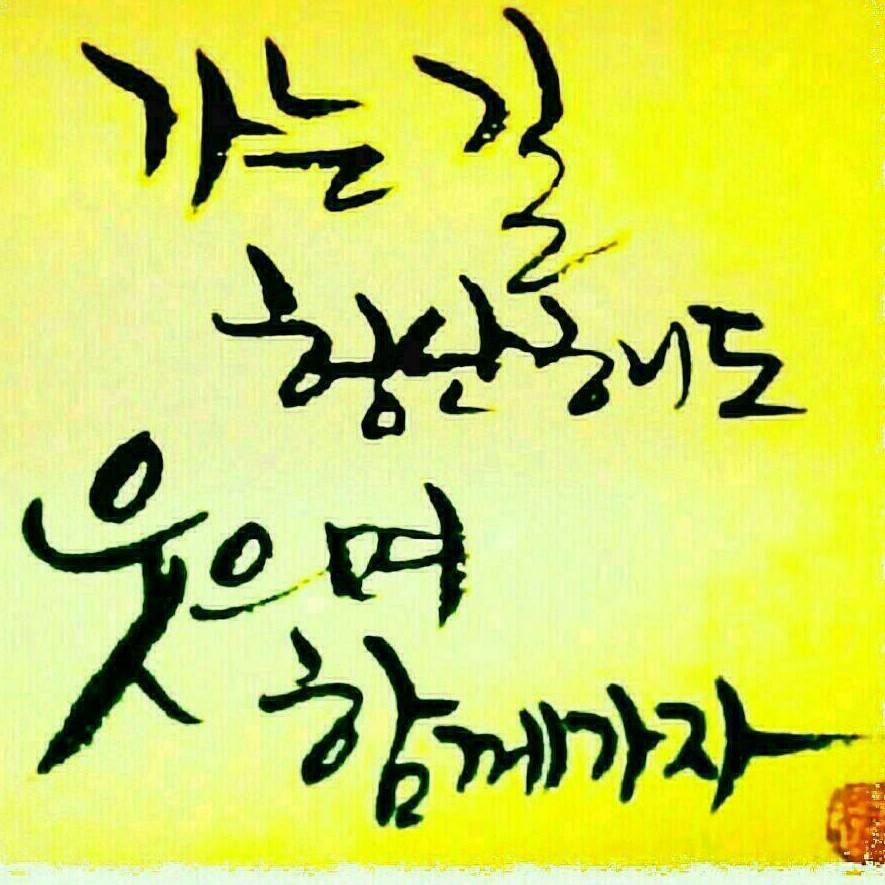 가는 길
험난해도
웃으며
함께가자